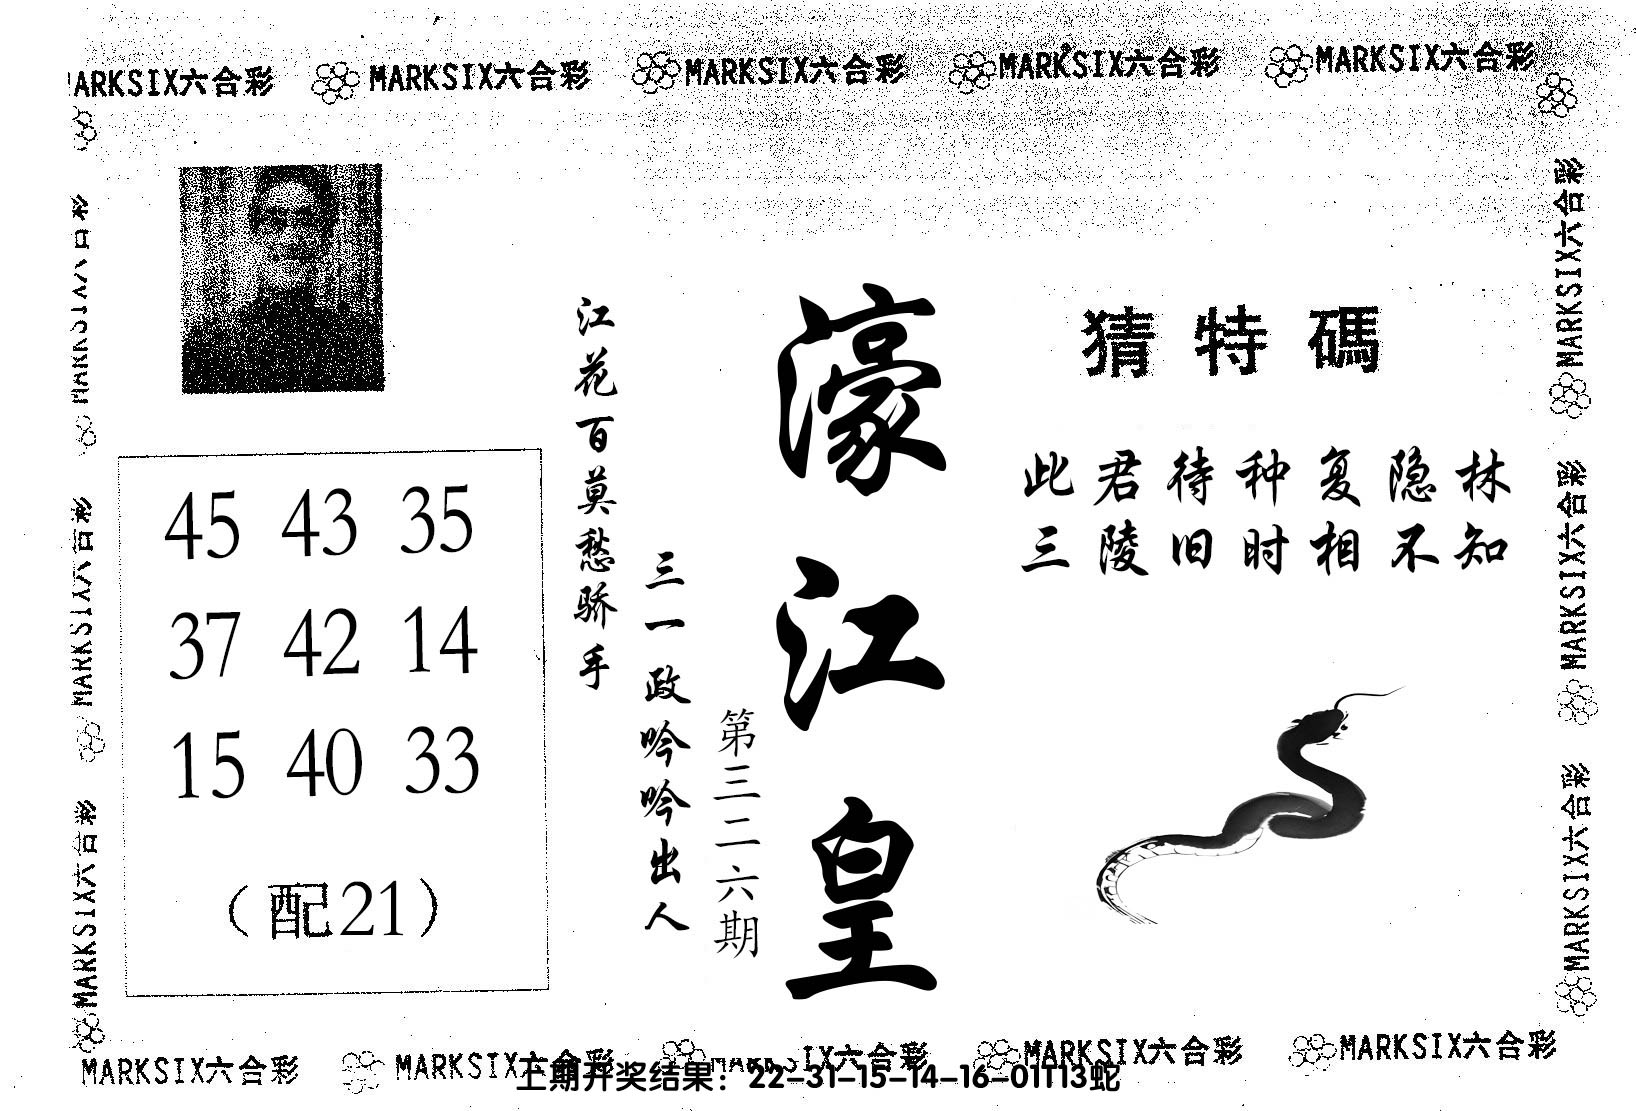 MARKSIX六合彩 MARKSIX六合彩 MARKSIX六合彩 MARKSIX六合彩 MARKSIX六合彩
MARKSIX六合彩
MARKSIX六合彩
MARKSIX六合彩
45 43 35
37 42 14
15 40 33
(配21)
江花百莫愁骄手
三一政吟吟出人
第三二六期
濠江皇
猜特碼
此君待种复隐林
三陵旧时相不知
MARKSIX六合彩
MARKSIX六合彩
MARKSIX六合彩
MARKSIX六合彩 MARKSIX六合彩 MARKSIX六合彩 MARKSIX六合彩 MARKSIX六合彩
上期开奖结果：22-31-15-14-16-01T13蛇